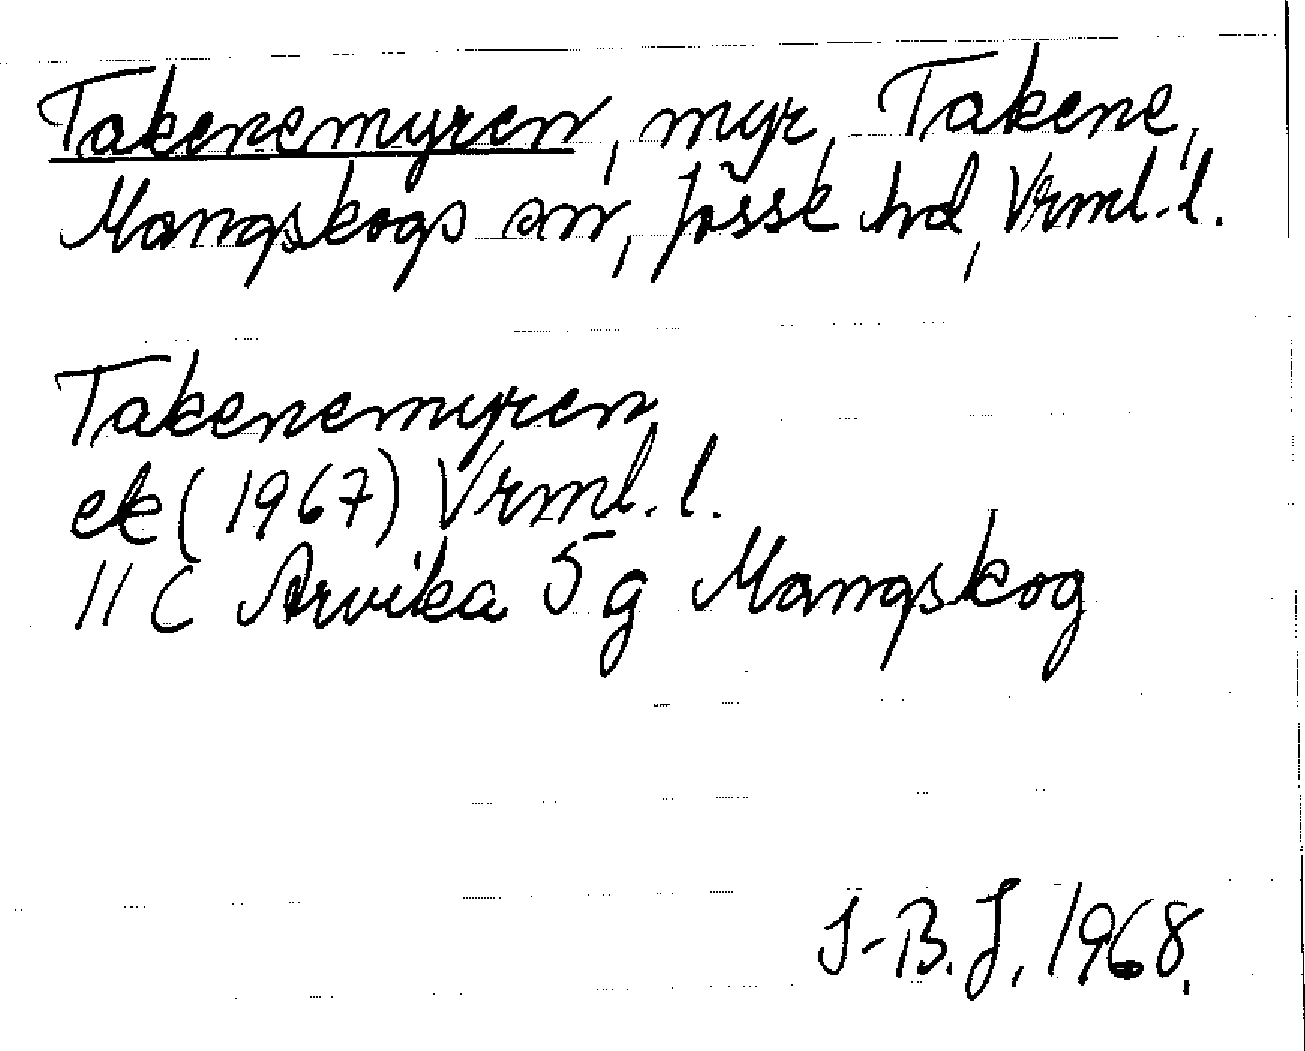 Takenemyren, myr, Takene,
Mangskogs sn, Jösse hd, Vrml. l.
Takenemyren
ek (1967) Vrml. l.
11 C Arvika 5 g Mangskog
J-B. J, 1968.